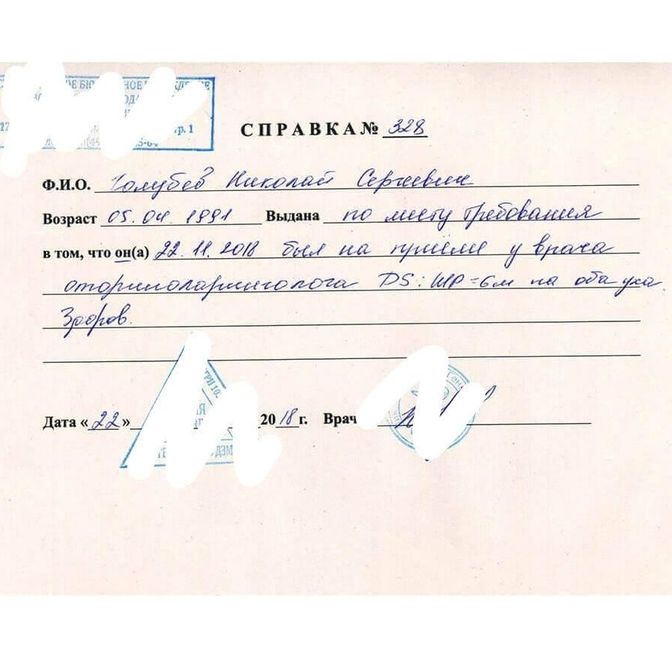 НОЕ БЮ НОВО ЖДЕНИЕ
р. 1
СПРАВКА № 328
Ф.И.О. Голубев Николай Сергеевич
Возраст 05.04.1991 Выдана по месту требования
в том, что он(а) 22.11.2018 был на приёме у врача
оториноларинголога DS: ШР = 6м на оба уха.
Здоров.
Дата «22» 2018 г. Врач